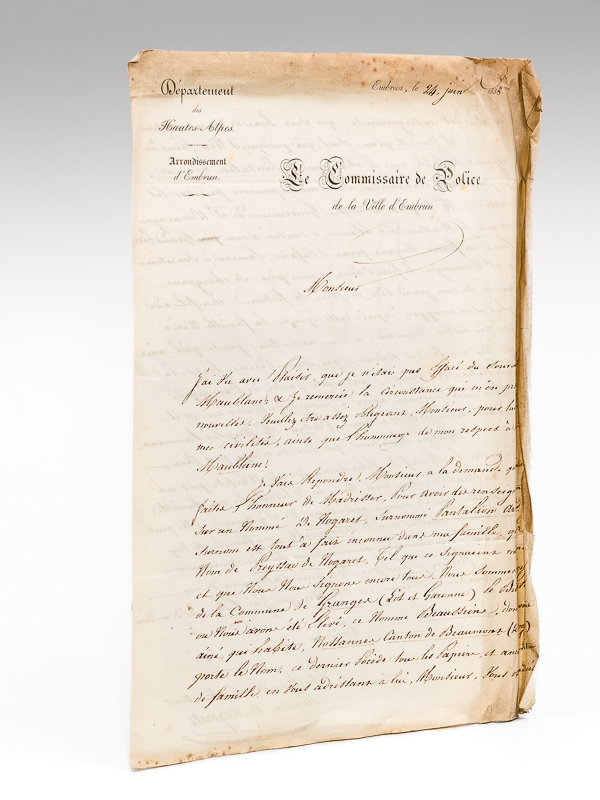 Département
des
Hautes-Alpes.
Arrondissement
d'Embrun.
Embrun, le 24 juin
Le Commissaire de Police
de la Ville d'Embrun
Monsieur
J'ai Vu avec Plaisir, que je n'étais pas Effacé du Souv
Maublanc, & Je remercie la circonstance qui m'en pr
nouvelles. Veuillez être assez obligeant, Monsieur, pour lui
mes civilités, ainsi que l'hommage de mon respect à
Maublanc.
Je Vais Répondre, Monsieur, a la demande que
faites l'honneur de M'adresser, Pour avoir des renseign
Sur un Nommé De Nogaret, Surnommé Pantalion
Surnom est tout à fait inconnu dans ma famille, qu
Nom de Preyssac de Nogaret, Tel que ce Signaient
et que Nous Nous Signons encore tous. Nous Sommes
de la Commune de Granges (Lot et Garonne) le
ou Nous avons été Elevé, ce Nomme Beaussiens,
ainé, qui habite, Canton de Beaumont
porte le Nom, ce dernier Possède tous les Papiers, et
de famille, en Vous adressant à lui, Monsieur, Vous